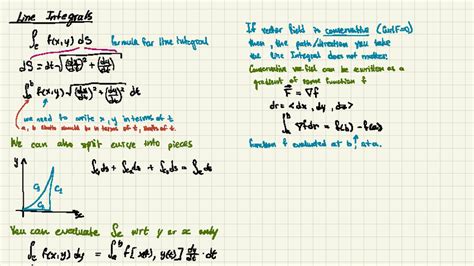 Line Integrals
∫c f(x,y) dS
formula for line integral
dS = dt √((dx/dt)² + (dy/dt)²)
∫ₐᵇ f(x,y) √((dx/dt)² + (dy/dt)²) dt
we need to write x, y in terms of t
a, b limits should be in terms of t, limits of t.
We can also split curve into pieces
y
C₁
C₂
x
∫c₁ ds + ∫c₂ ds + ∫c₃ ds = ∫c ds
You can evaluate ∫c wrt y or x only
∫c f(x,y) dy = ∫ₐᵇ f[x(t), y(t)] dy/dt · dt
If vector field is conservative (Curl F=0)
then, the path/direction you take
the Line Integral does not matter.
Conservative vector field can be rewritten as a
gradient of some function f
F = ∇f
dr = <dx, dy, dz>
∫ₐᵇ ∇f dr = f(b) - f(a)
function f evaluated at b, at a.